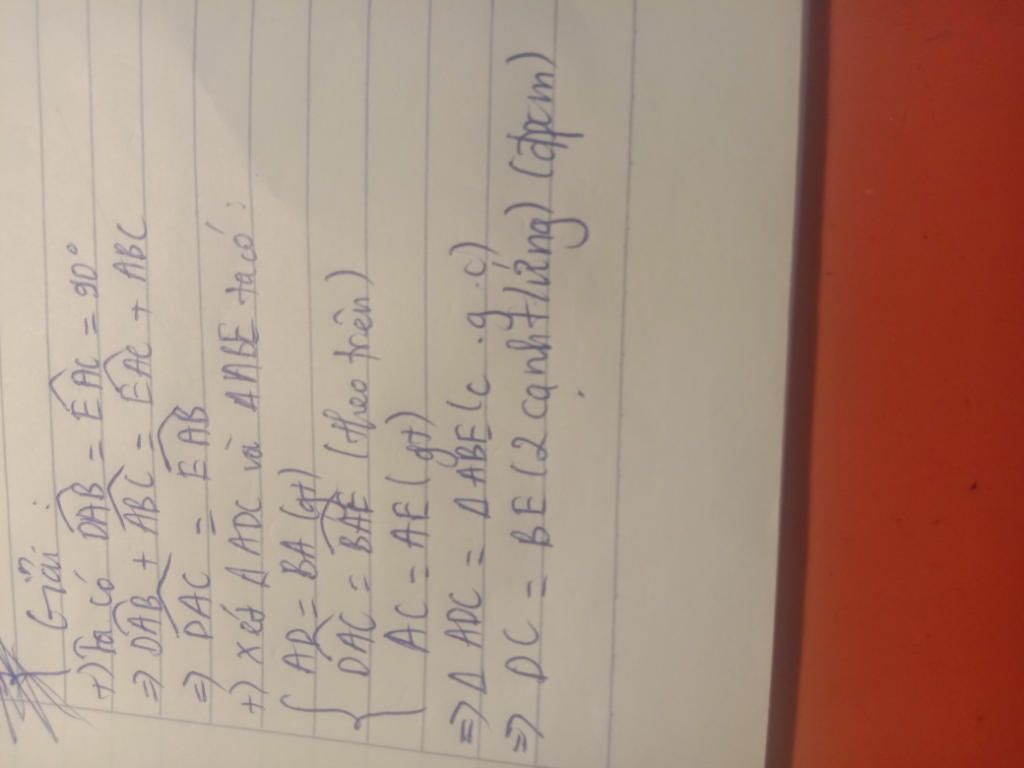 Giải:
+) Ta có DAB = EAC = 90°
=> DAB + ABC = EAC + ABC
=> DAC = EAB
+) Xét Δ ADC và ΔABE ta có:
AD = BA (gt)
DAC = BAE (theo trên)
AC = AE (gt)
=> Δ ADC = Δ ABE (c.g.c)
=> DC = BE (2 cạnh t/ứng) (đpcm)